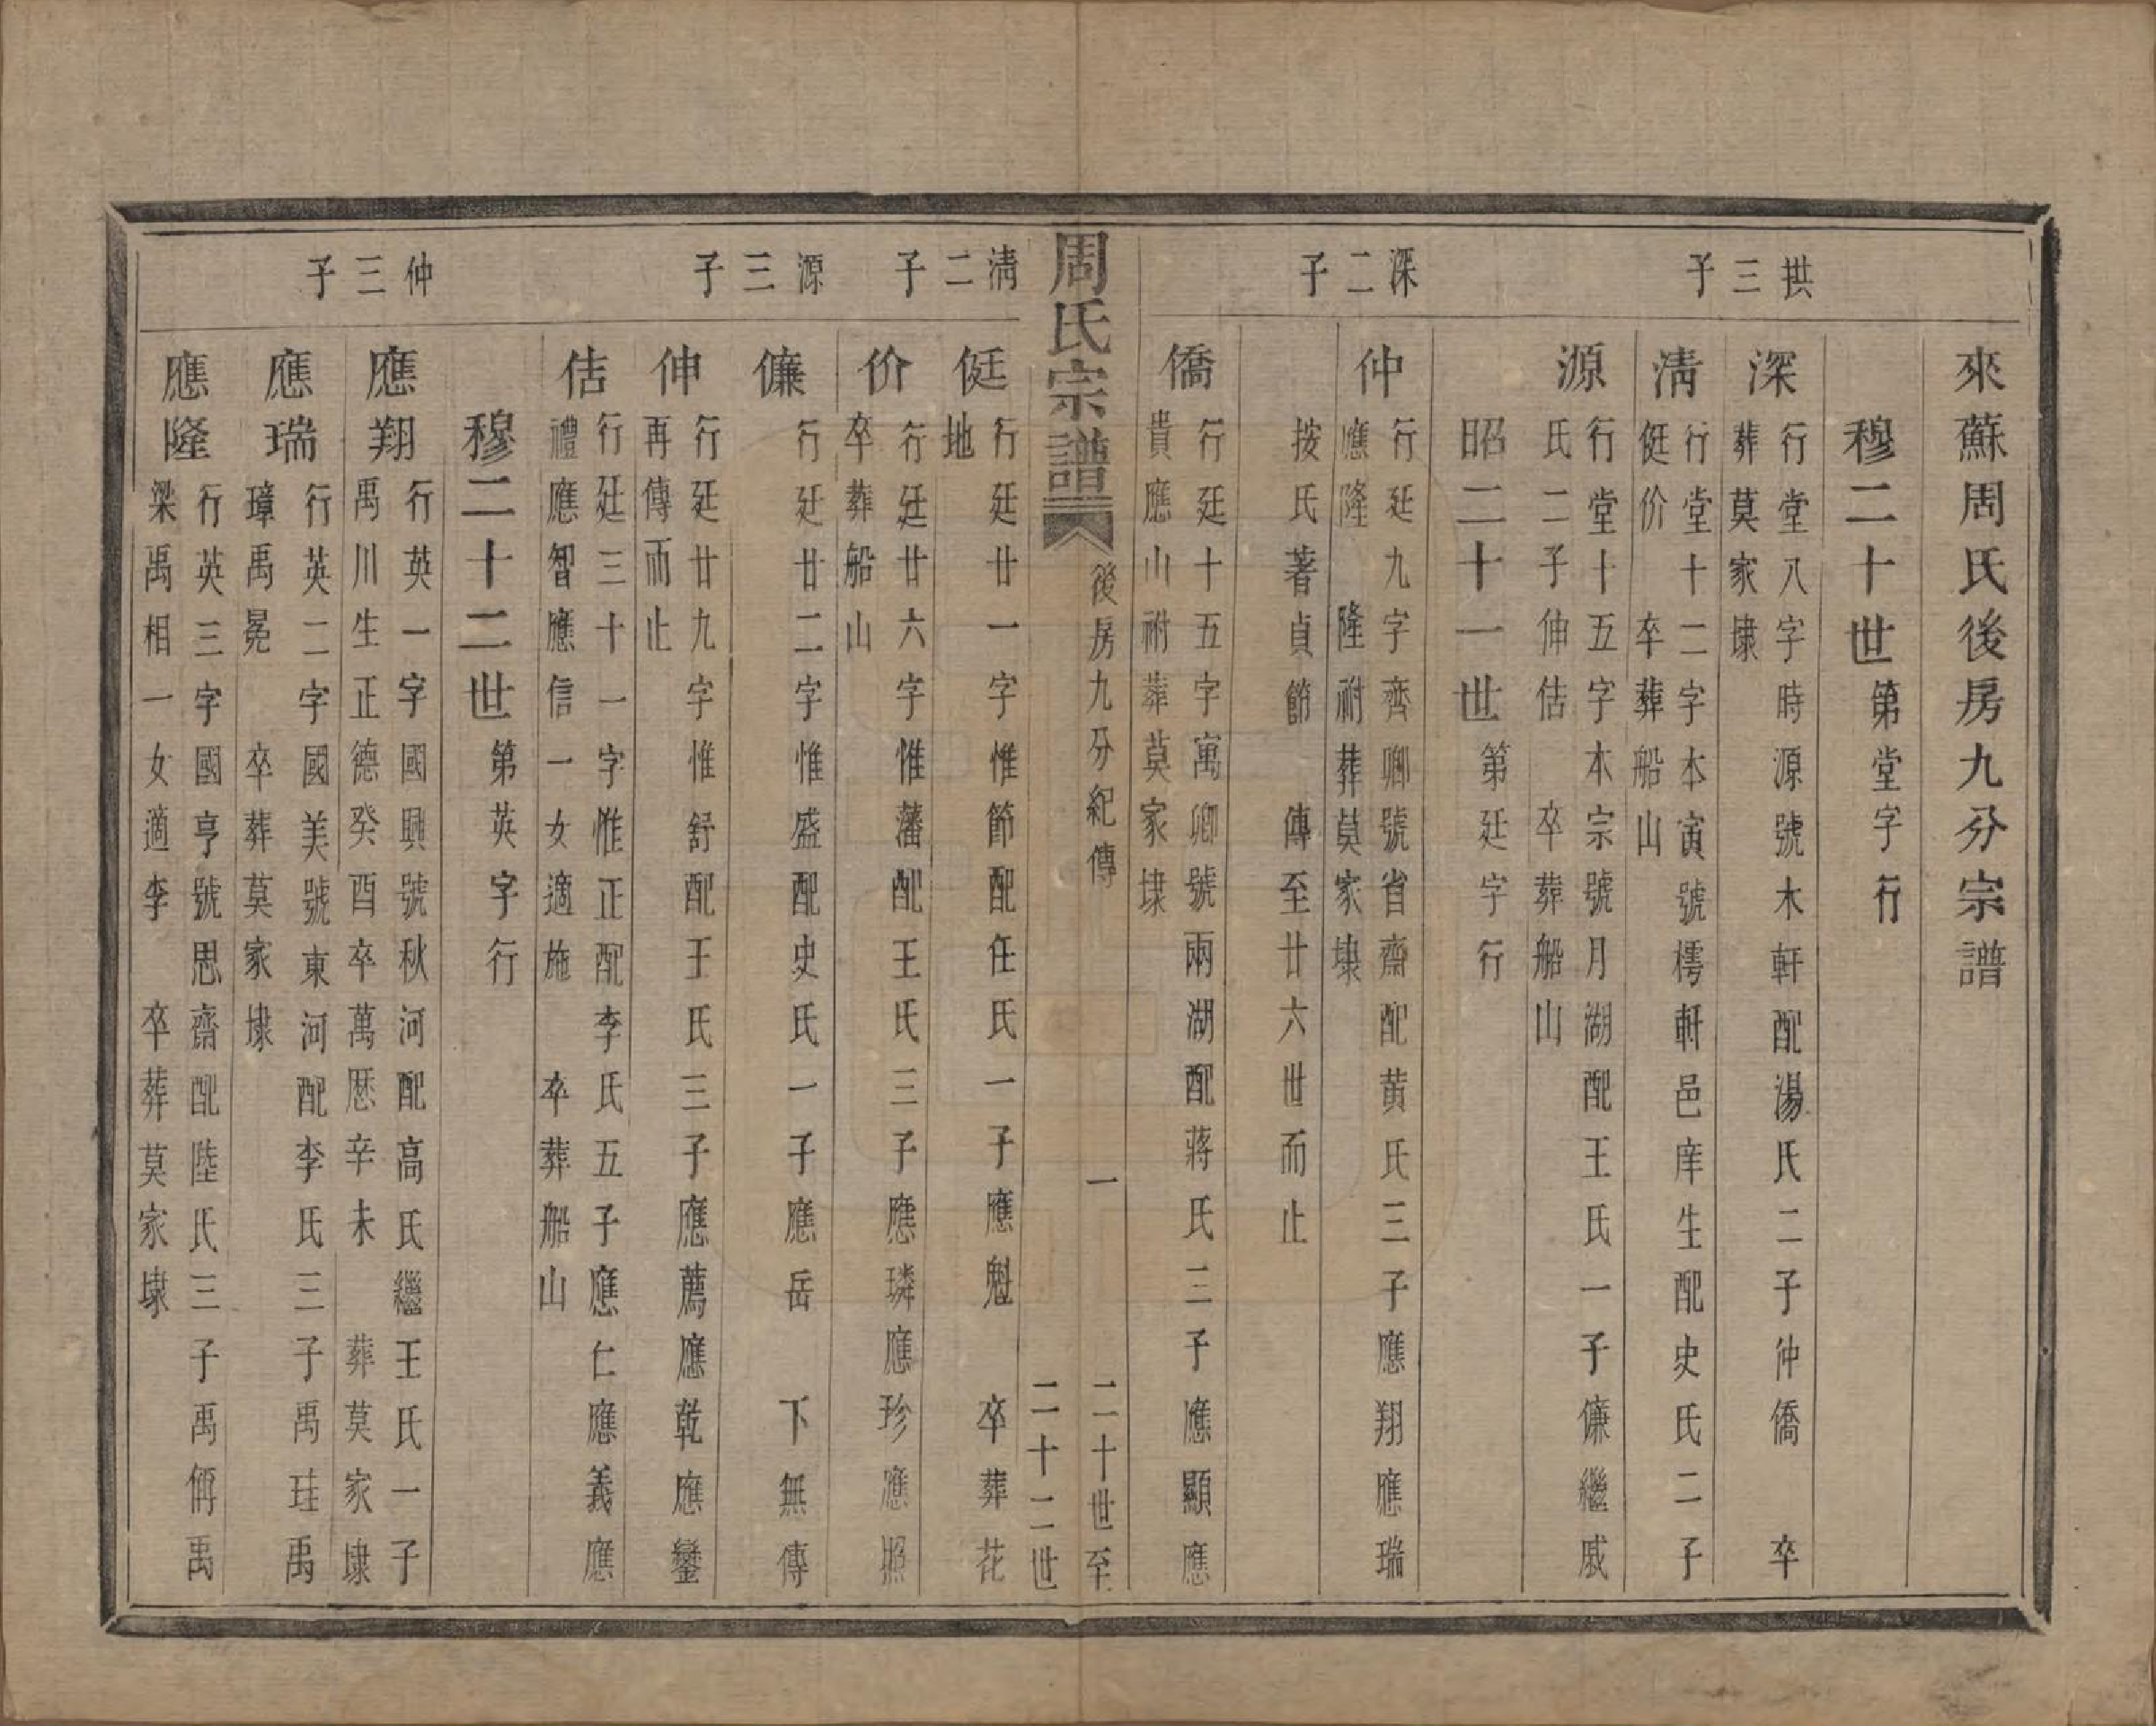 來蘇周氏後房九分宗譜
穆二十世第堂字行
拱三子
深
行堂八字時源號木軒配湯氏二子仲僑 卒
葬莫家埭
清
行堂十二字本寅號樗軒邑庠生配史氏二子
侹价 卒葬船山
源
行堂十五字本宗號月湖配王氏一子㒤繼戚
氏二子伸估 卒葬船山
昭二十一世第廷字行
深二子
仲
行廷九字齊卿號省齋配黃氏三子應翔應瑞
應隆 隆祔葬莫家埭
按氏著貞節 傳至廿六世而止
僑
行廷十五字寓卿號兩湖配蔣氏三子應顯應
貴應山祔葬莫家埭
周氏宗譜
後房九分紀傳
一
二十世至
二十二世
清二子
侹
行廷廿一字惟節配任氏一子應魁 卒葬花
地
价
行廷廿六字惟藩配王氏三子應璘應珍應照
卒葬船山
源三子
㒤
行廷廿二字惟盛配史氏一子應岳 下無傳
伸
行廷廿九字惟舒配王氏三子應薦應乾應鑾
再傳而止
估
行廷三十一字惟正配李氏五子應仁應義應
禮應智應信一女適施 卒葬船山
穆二十二世第英字行
仲三子
應翔
行英一字國興號秋河配高氏繼王氏一子
禹川生正德癸酉卒萬厯辛未 葬莫家埭
應瑞
行英二字國美號東河配李氏三子禹珪禹
璋禹冕 卒葬莫家埭
應隆
行英三字國亨號思齋配陸氏三子禹偁禹
梁禹相一女適李 卒葬莫家埭